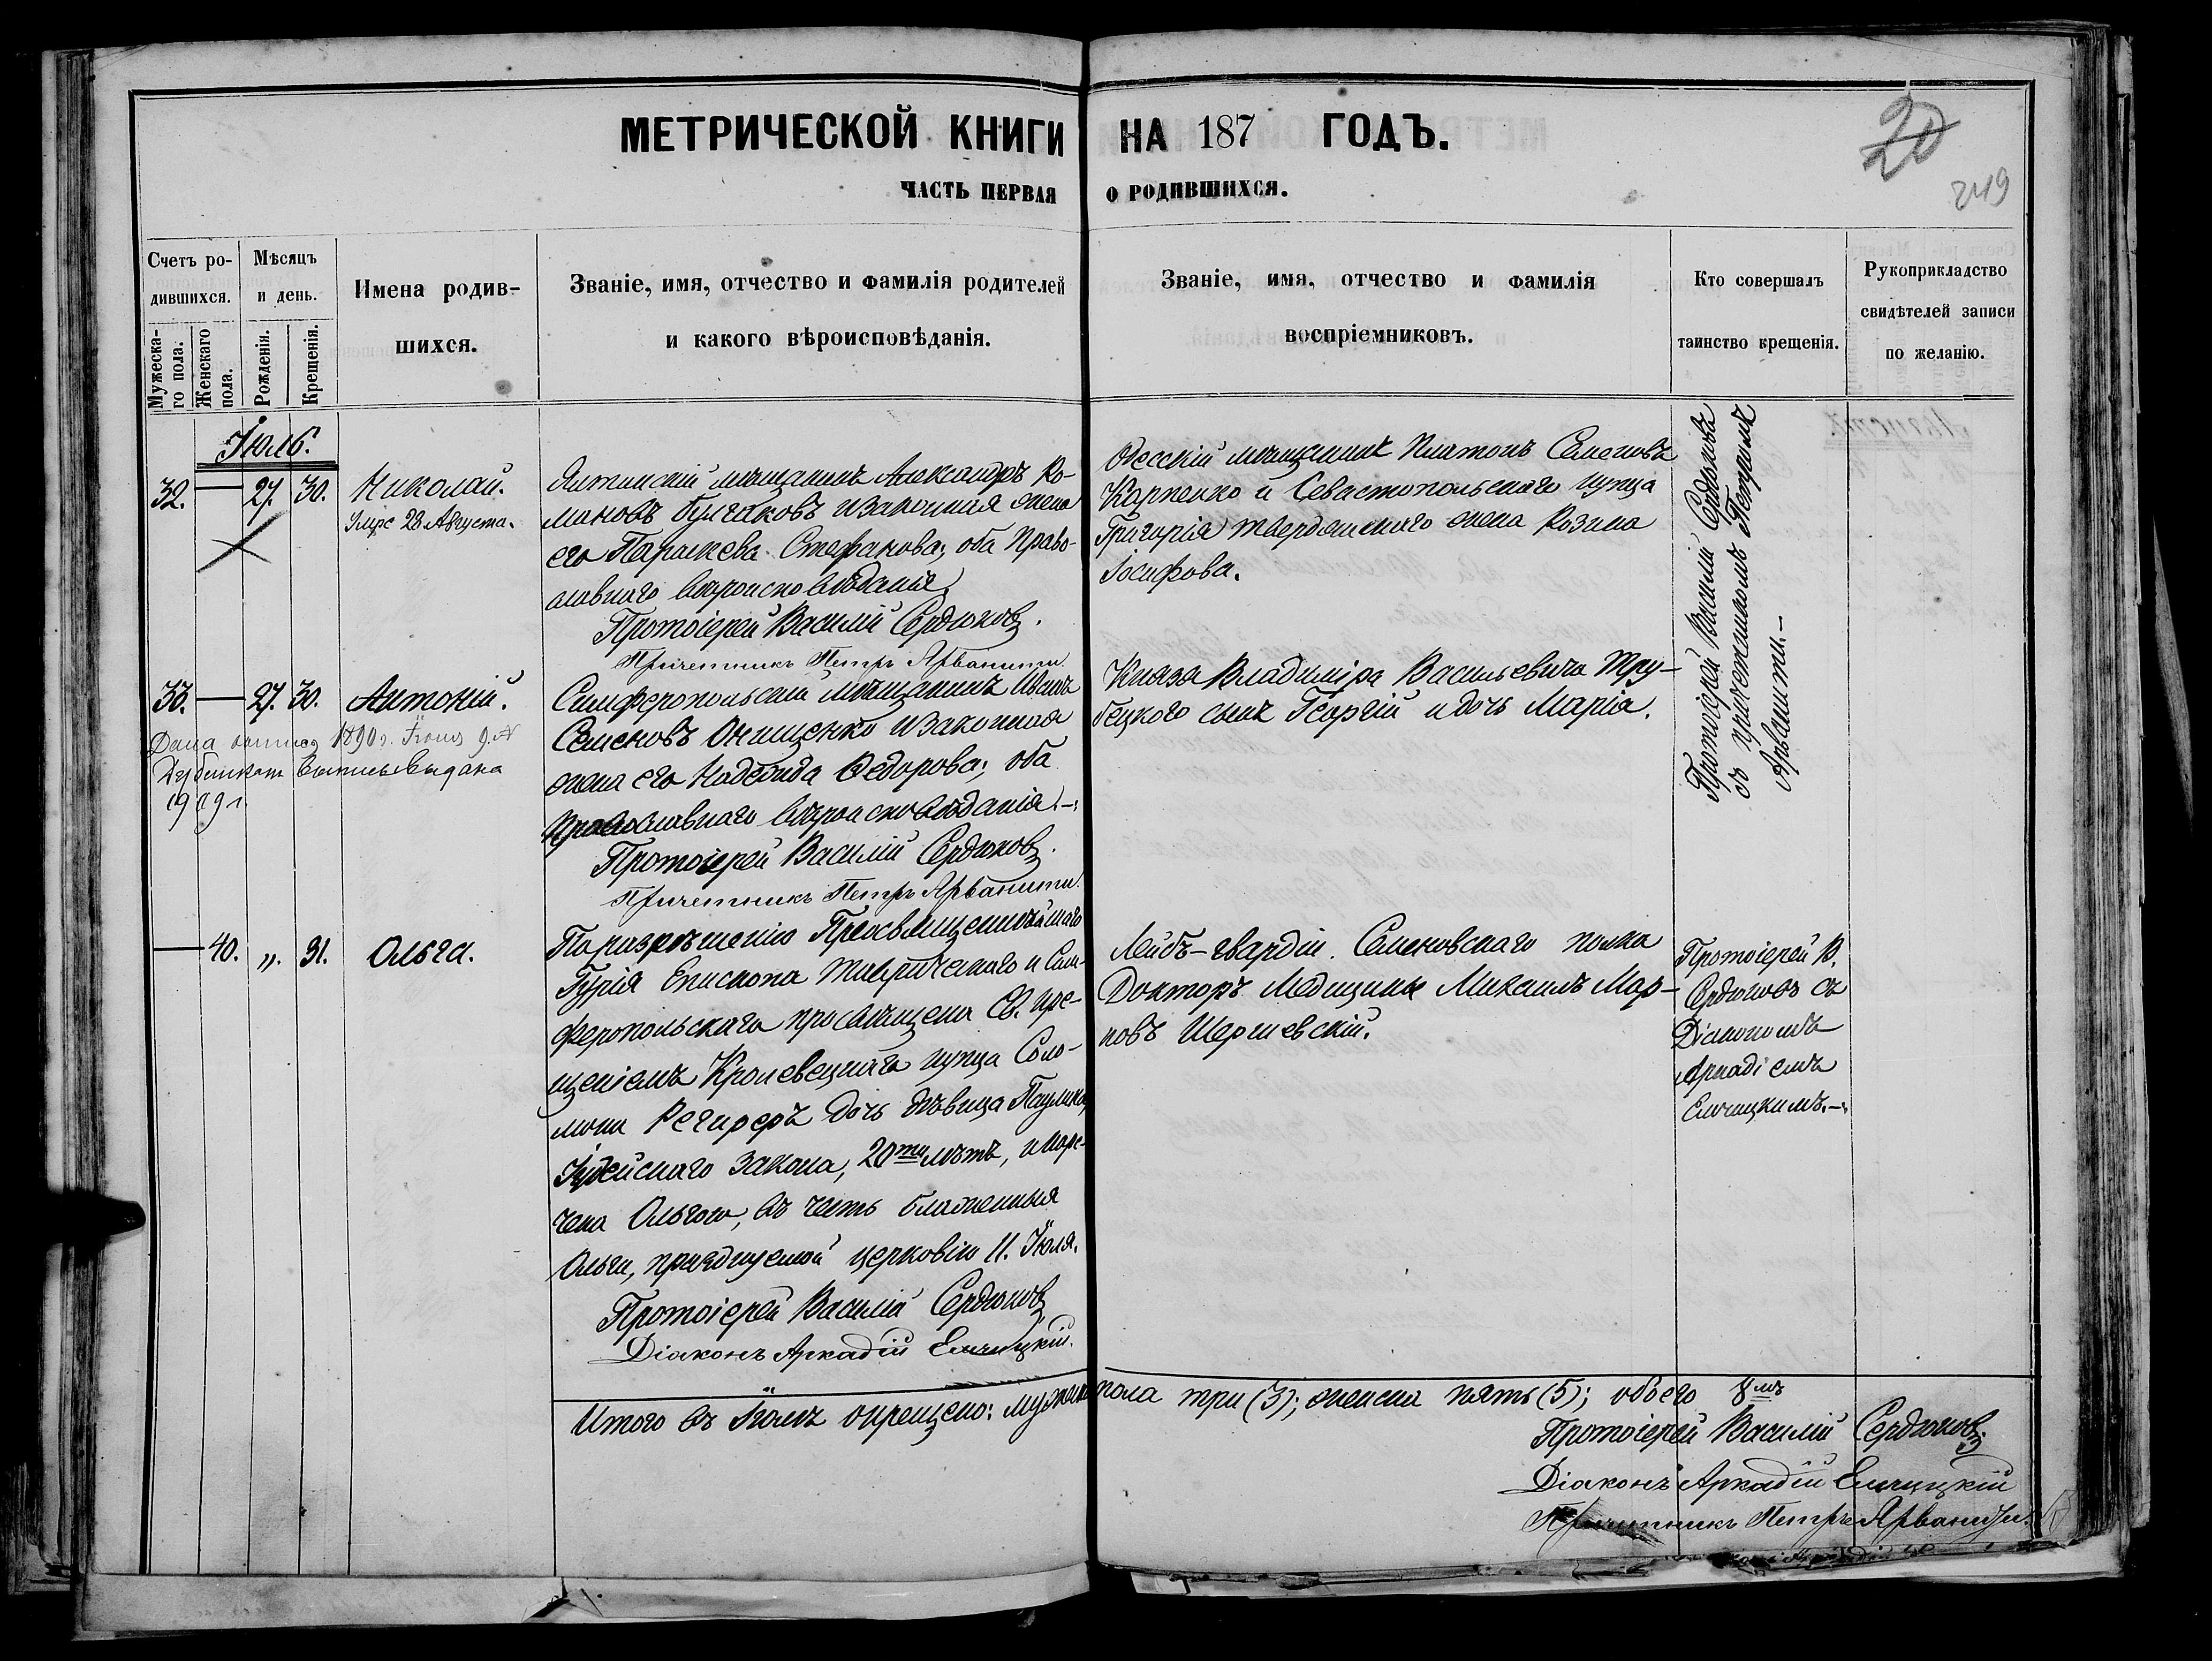 МЕТРИЧЕСКОЙ КНИГИ НА 187 ГОДЪ.
20
ЧАСТЬ ПЕРВАЯ О РОДИВШИХСЯ.
249
Счетъ ро-
дившихся.
Мужеска-
го пола.
Женскаго
пола.
Мѣсяцъ
и день.
Рожденія.
Крещенія.
Имена родив-
шихся.
Званіе, имя, отчество и фамилія родителей
и какого вѣроисповѣданія.
Званіе, имя, отчество и фамилія
воспріемниковъ.
Кто совершалъ
таинство крещенія.
Рукоприкладство
свидѣтелей записи
по желанію.
Іюль.
32. — 27. 30. Николай.
Умре 28 Августа.
Ялтинскій мѣщанинъ Александръ Ро-
мановъ Булгаковъ и законная жена
его Параскева Стефанова; оба право-
славнаго вѣроисповѣданія.
Протоіерей Василій Сердюковъ.
Причетникъ Петръ Арванити.
Одесскій мѣщанинъ Платонъ Семеновъ
Карпенко и Севастопольскаго купца
Григорія жена Розина
Іосифова.
Протоіерей Василій Сердюковъ
съ причетникомъ Петромъ
Арванити.—
33. — 27. 30. Антоній.
Дана 1890 г. Іюня 9.
выпись выдана
1919 г.
Симферопольскій мѣщанинъ
Семеновъ Онищенко и законная
жена его Надежда Федорова; оба
православнаго вѣроисповѣданія.—
Протоіерей Василій Сердюковъ.
Причетникъ Петръ Арванити.
Князя Владиміра Васильевича Тру-
бецкого сынъ Георгій и дочь Марія.
— 40. „. 31. Ольга.
По разрѣшенію Преосвященнѣйшаго
Гурія Епископа Таврическаго и Сим-
феропольскаго просвѣщена Св. Кре-
щеніемъ Кролевецкаго купца Соло-
мона дочь дѣвица Паулина,
Іудейскаго закона, 20ти лѣтъ, и наре-
чена Ольгою, въ честь блаженныя
Ольги, празднуемой церковію 11. Іюля.
Протоіерей Василій Сердюковъ
Діаконъ Аркадій
Лейбъ-гвардіи. Семеновскаго полка
Докторъ Медицины Михаилъ Мар-
ковъ Шершевскій.
Протоіерей В.
Сердюковъ съ
Діакономъ
Аркадіемъ
Итого въ Іюлѣ окрещено: мужеска пола три (3); женска пять (5); обоего 8мь
Протоіерей Василій Сердюковъ.
Діаконъ Аркадій
Причетникъ Петръ Арванити.